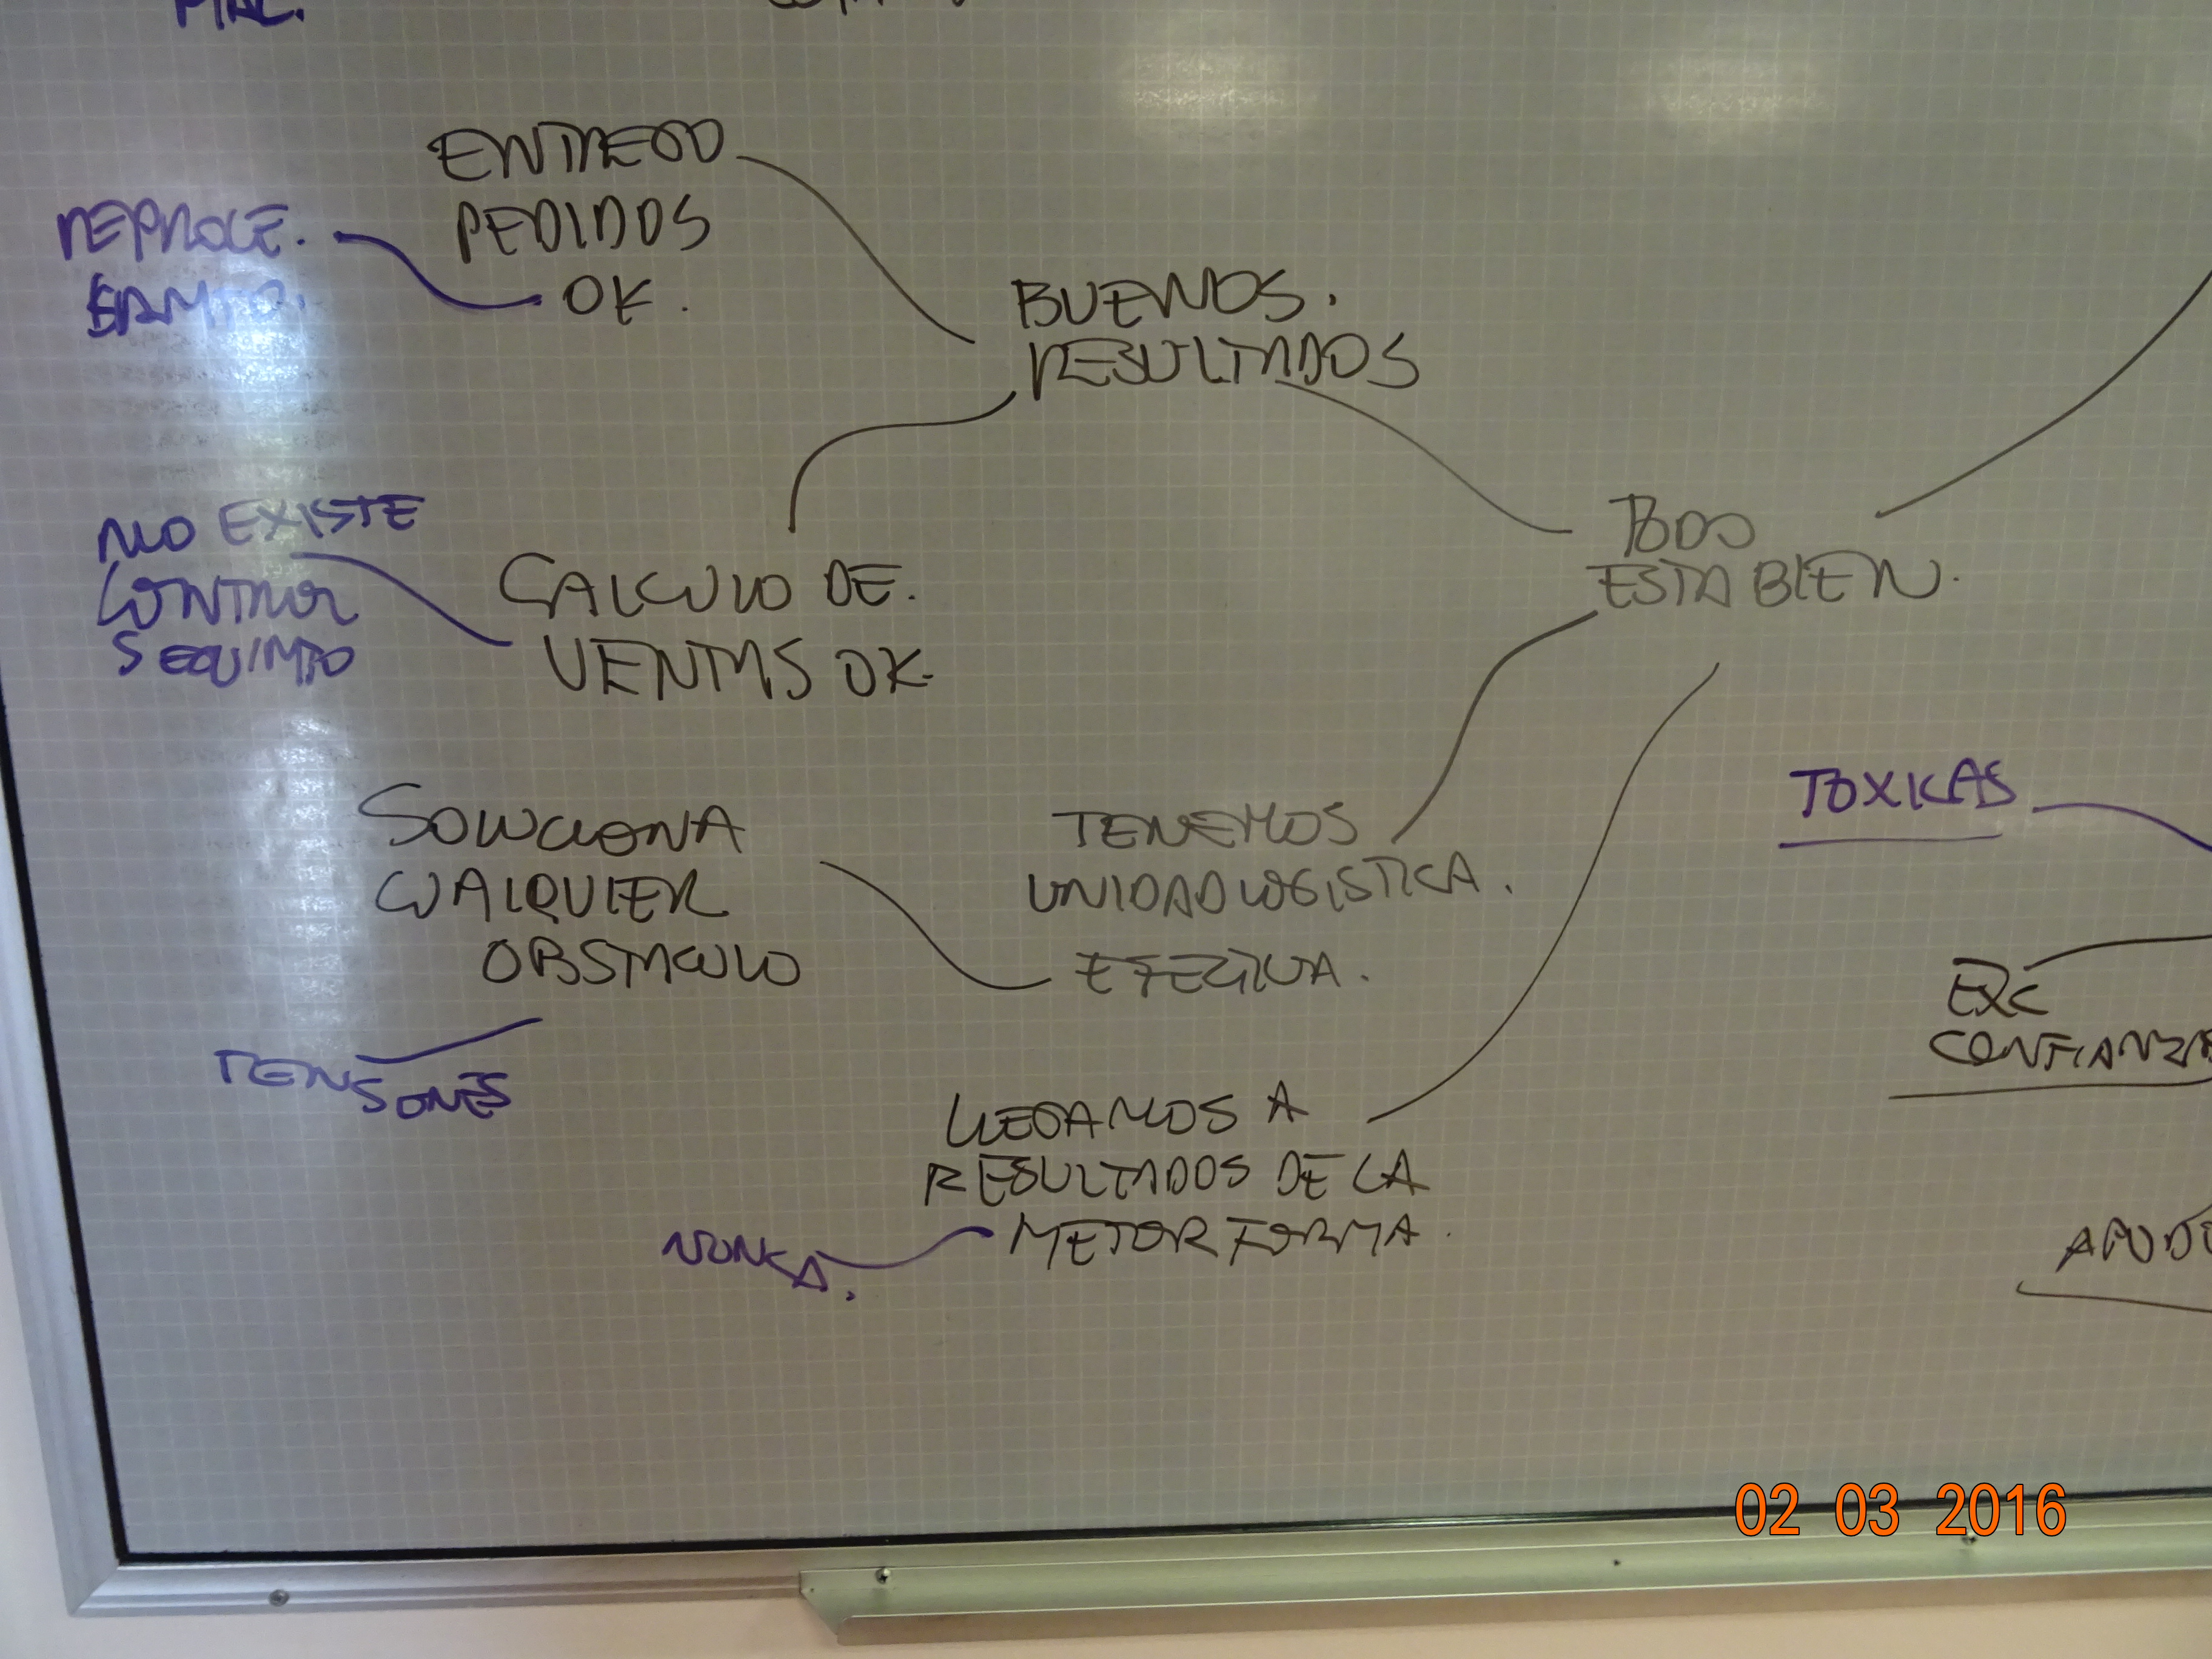 MAL.
ENTREGO
PEDIDOS
OK.
REPROCE.
BUENOS.
RESULTADOS
NO EXISTE
CONTROL
SEGUIMTO
CALCULO DE.
VENTAS OK.
TODO
ESTA BIEN.
SOLUCIONA
CUALQUIER
OBSTACULO
TENEMOS
UNIDAD LOGISTICA.
EFECTIVA.
TOXICAS
TENSIONES
EXC
CONFIANZA
LLEGAMOS A
RESULTADOS DE LA
MEJOR FORMA.
NUNCA.
02 03 2016